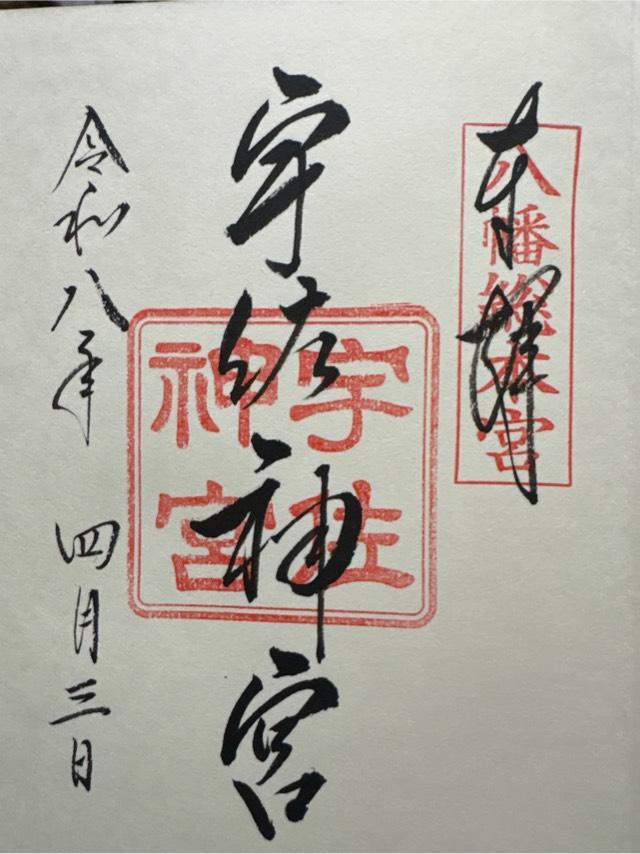 奉拝
八幡総本宮
宇佐神宮
宇佐神宮
令和八年 四月三日